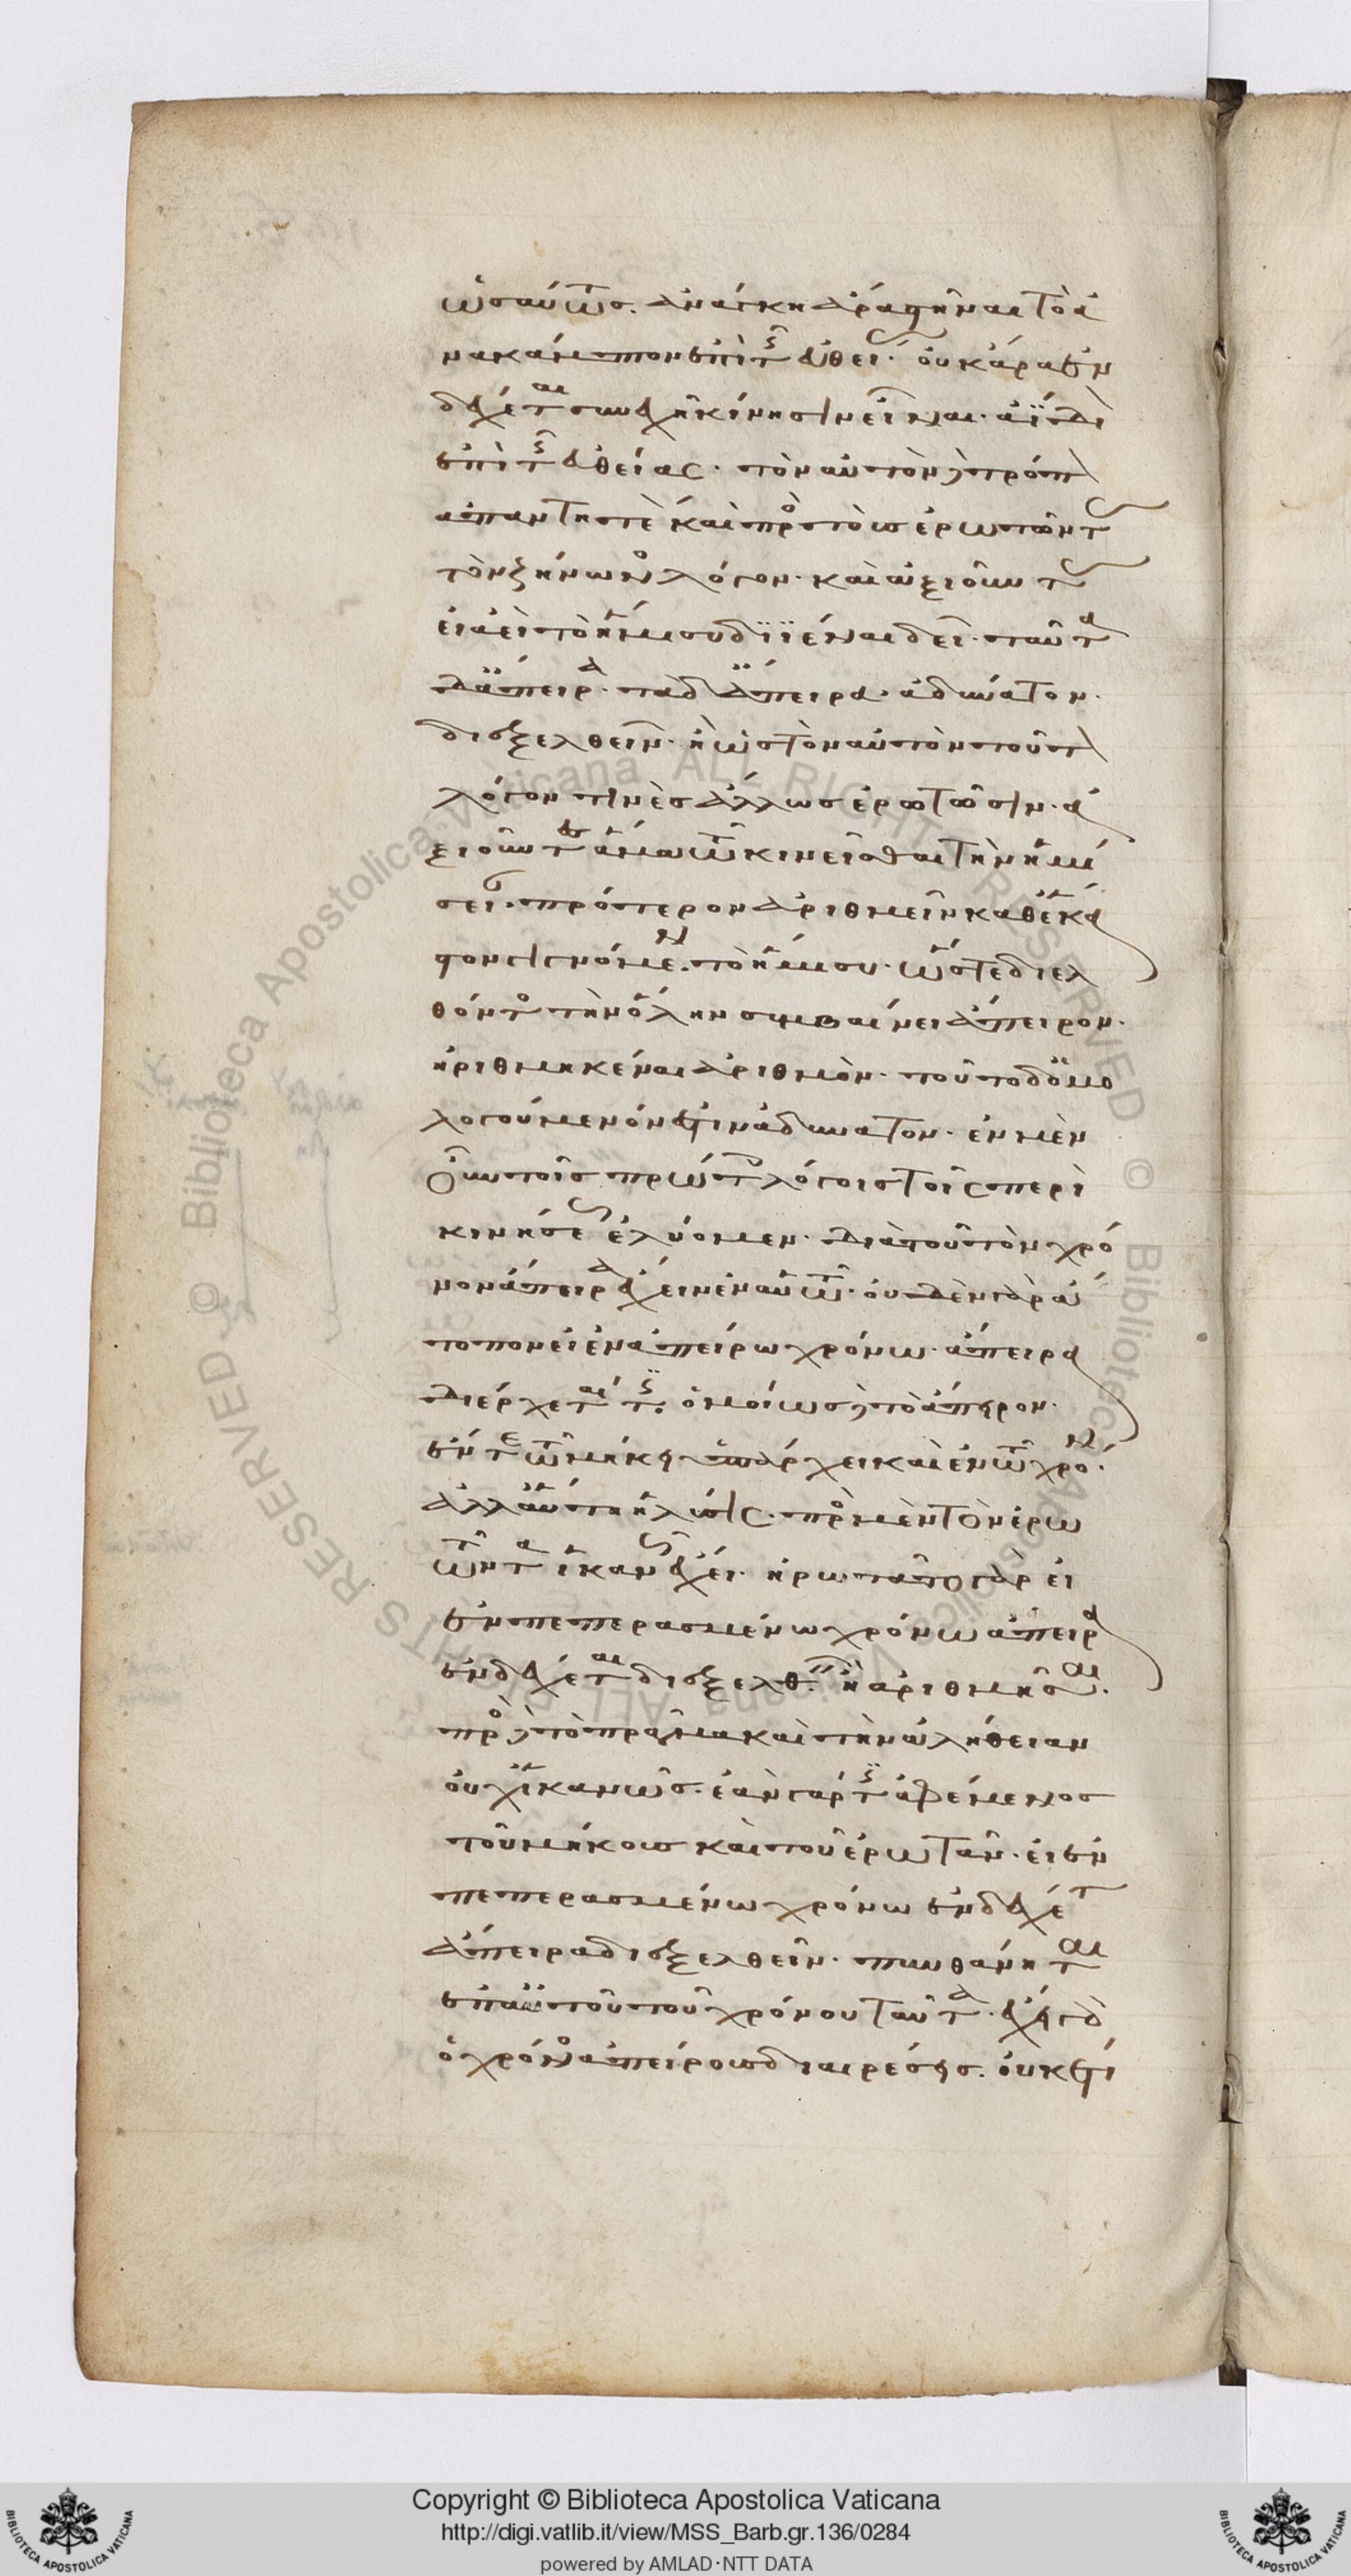 ὡσαύτως. ἀνάγκη ἄρα στῆναι τὸ ἀ
νακάμπτον ἐπὶ τῆς εὐθείας. οὐκ ἄρα ἐν
δέχεται συνεχῆ κίνησιν εἶναι ἀΐδι
ἐπὶ τῆς εὐθείας. τὸν αὐτὸν δὲ τρόπον
ἀπαντητέον καὶ πρὸς τοὺς ἐρωτῶντας
τὸν ζήνωνος λόγον. καὶ ἀξιοῦντας
εἰ ἀεὶ τὸ ἥμισυ διϊέναι δεῖ. ταῦτα
δ' ἄπειρα. τὰ δ' ἄπειρα ἀδύνατον
διεξελθεῖν. ἢ ὡς τὸν αὐτὸν τοῦτον
λόγον τινὲς ἄλλως ἐρωτῶσιν. ἀ
ξιοῦντες ἅμα τῷ κινεῖσθαι τὴν ἡμί
σειαν. πρότερον ἀριθμεῖν καθ' ἕκα
στον γιγνόμενον τὸ ἥμισυ. ὥστε διελ
θόντος τὴν ὅλην συμβαίνει ἄπειρον
ἠριθμηκέναι ἀριθμὸν. τοῦτο δ' ὁμο
λογούμενόν ἐστιν ἀδύνατον. ἐν μὲν
οὖν τοῖς πρώτοις λόγοις τοῖς περὶ
κινήσεως ἐλύομεν. διὰ τοῦ τὸν χρό
νον ἄπειρα ἔχειν ἐν αὑτῷ. οὐδὲν γὰρ ἄ
τοπον εἰ ἐν ἀπείρῳ χρόνῳ ἄπειρα
διέρχεταί τις. ὁμοίως δὲ τὸ ἄπειρον
ἔν τε τῷ μήκει ὑπάρχει καὶ ἐν τῷ χρόνῳ.
ἀλλ' αὕτη ἡ λύσις. πρὸς μὲν τὸν ἐρω
τῶντα ἱκανῶς ἔχει. ἠρωτᾶτο γὰρ εἰ
ἐν πεπερασμένῳ χρόνῳ ἄπειρα
ἐνδέχεται διεξελθεῖν ἢ ἀριθμῆσαι.
πρὸς δὲ τὸ πρᾶγμα καὶ τὴν ἀλήθειαν
οὐχ ἱκανῶς. ἐὰν γάρ τις ἀφέμενος
τοῦ μήκους καὶ τοῦ ἐρωτᾶν. εἰ ἐν
πεπερασμένῳ χρόνῳ ἐνδέχεται
ἄπειρα διεξελθεῖν. πυνθάνηται
ἐπ' αὐτοῦ τοῦ χρόνου ταῦτα. ἔχει γὰρ
ὁ χρόνος ἀπείρους διαιρέσεις. οὐκέτι